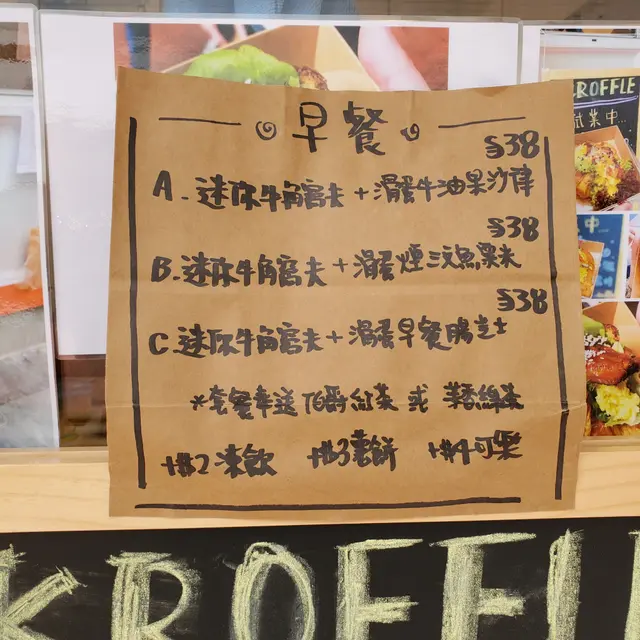 KROFFLE
試業中...
早餐
$38
A. 迷你牛角窩夫 + 滑蛋牛油果沙律
$38
B. 迷你牛角窩夫 + 滑蛋煙三文魚窩夫
$38
C. 迷你牛角窩夫 + 滑蛋早餐腸芝士
*套餐奉送 伯爵紅茶 或
+$2 凍飲 +$3薯餅 +$4可樂
KROFFL